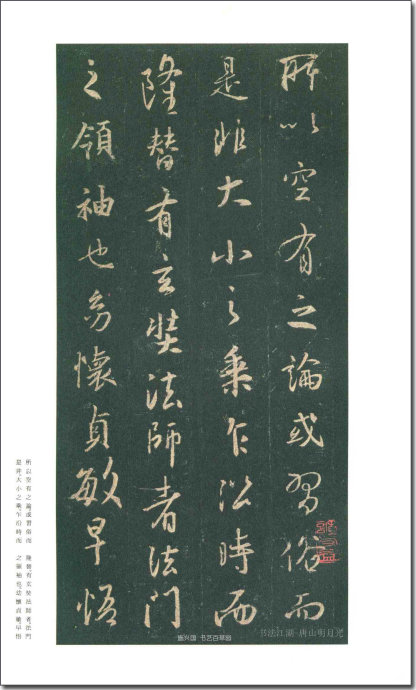 所以空有之論或習俗而
是非大小之乘乍沿時而
隆替有玄奘法師者法門
之領袖也幼懷貞敏早悟
所以空有之論或習俗而
是非大小之乘乍沿時而
隆替有玄奘法師者法門
之領袖也幼懷貞敏早悟
书艺百草园
书法江湖·唐山明月光